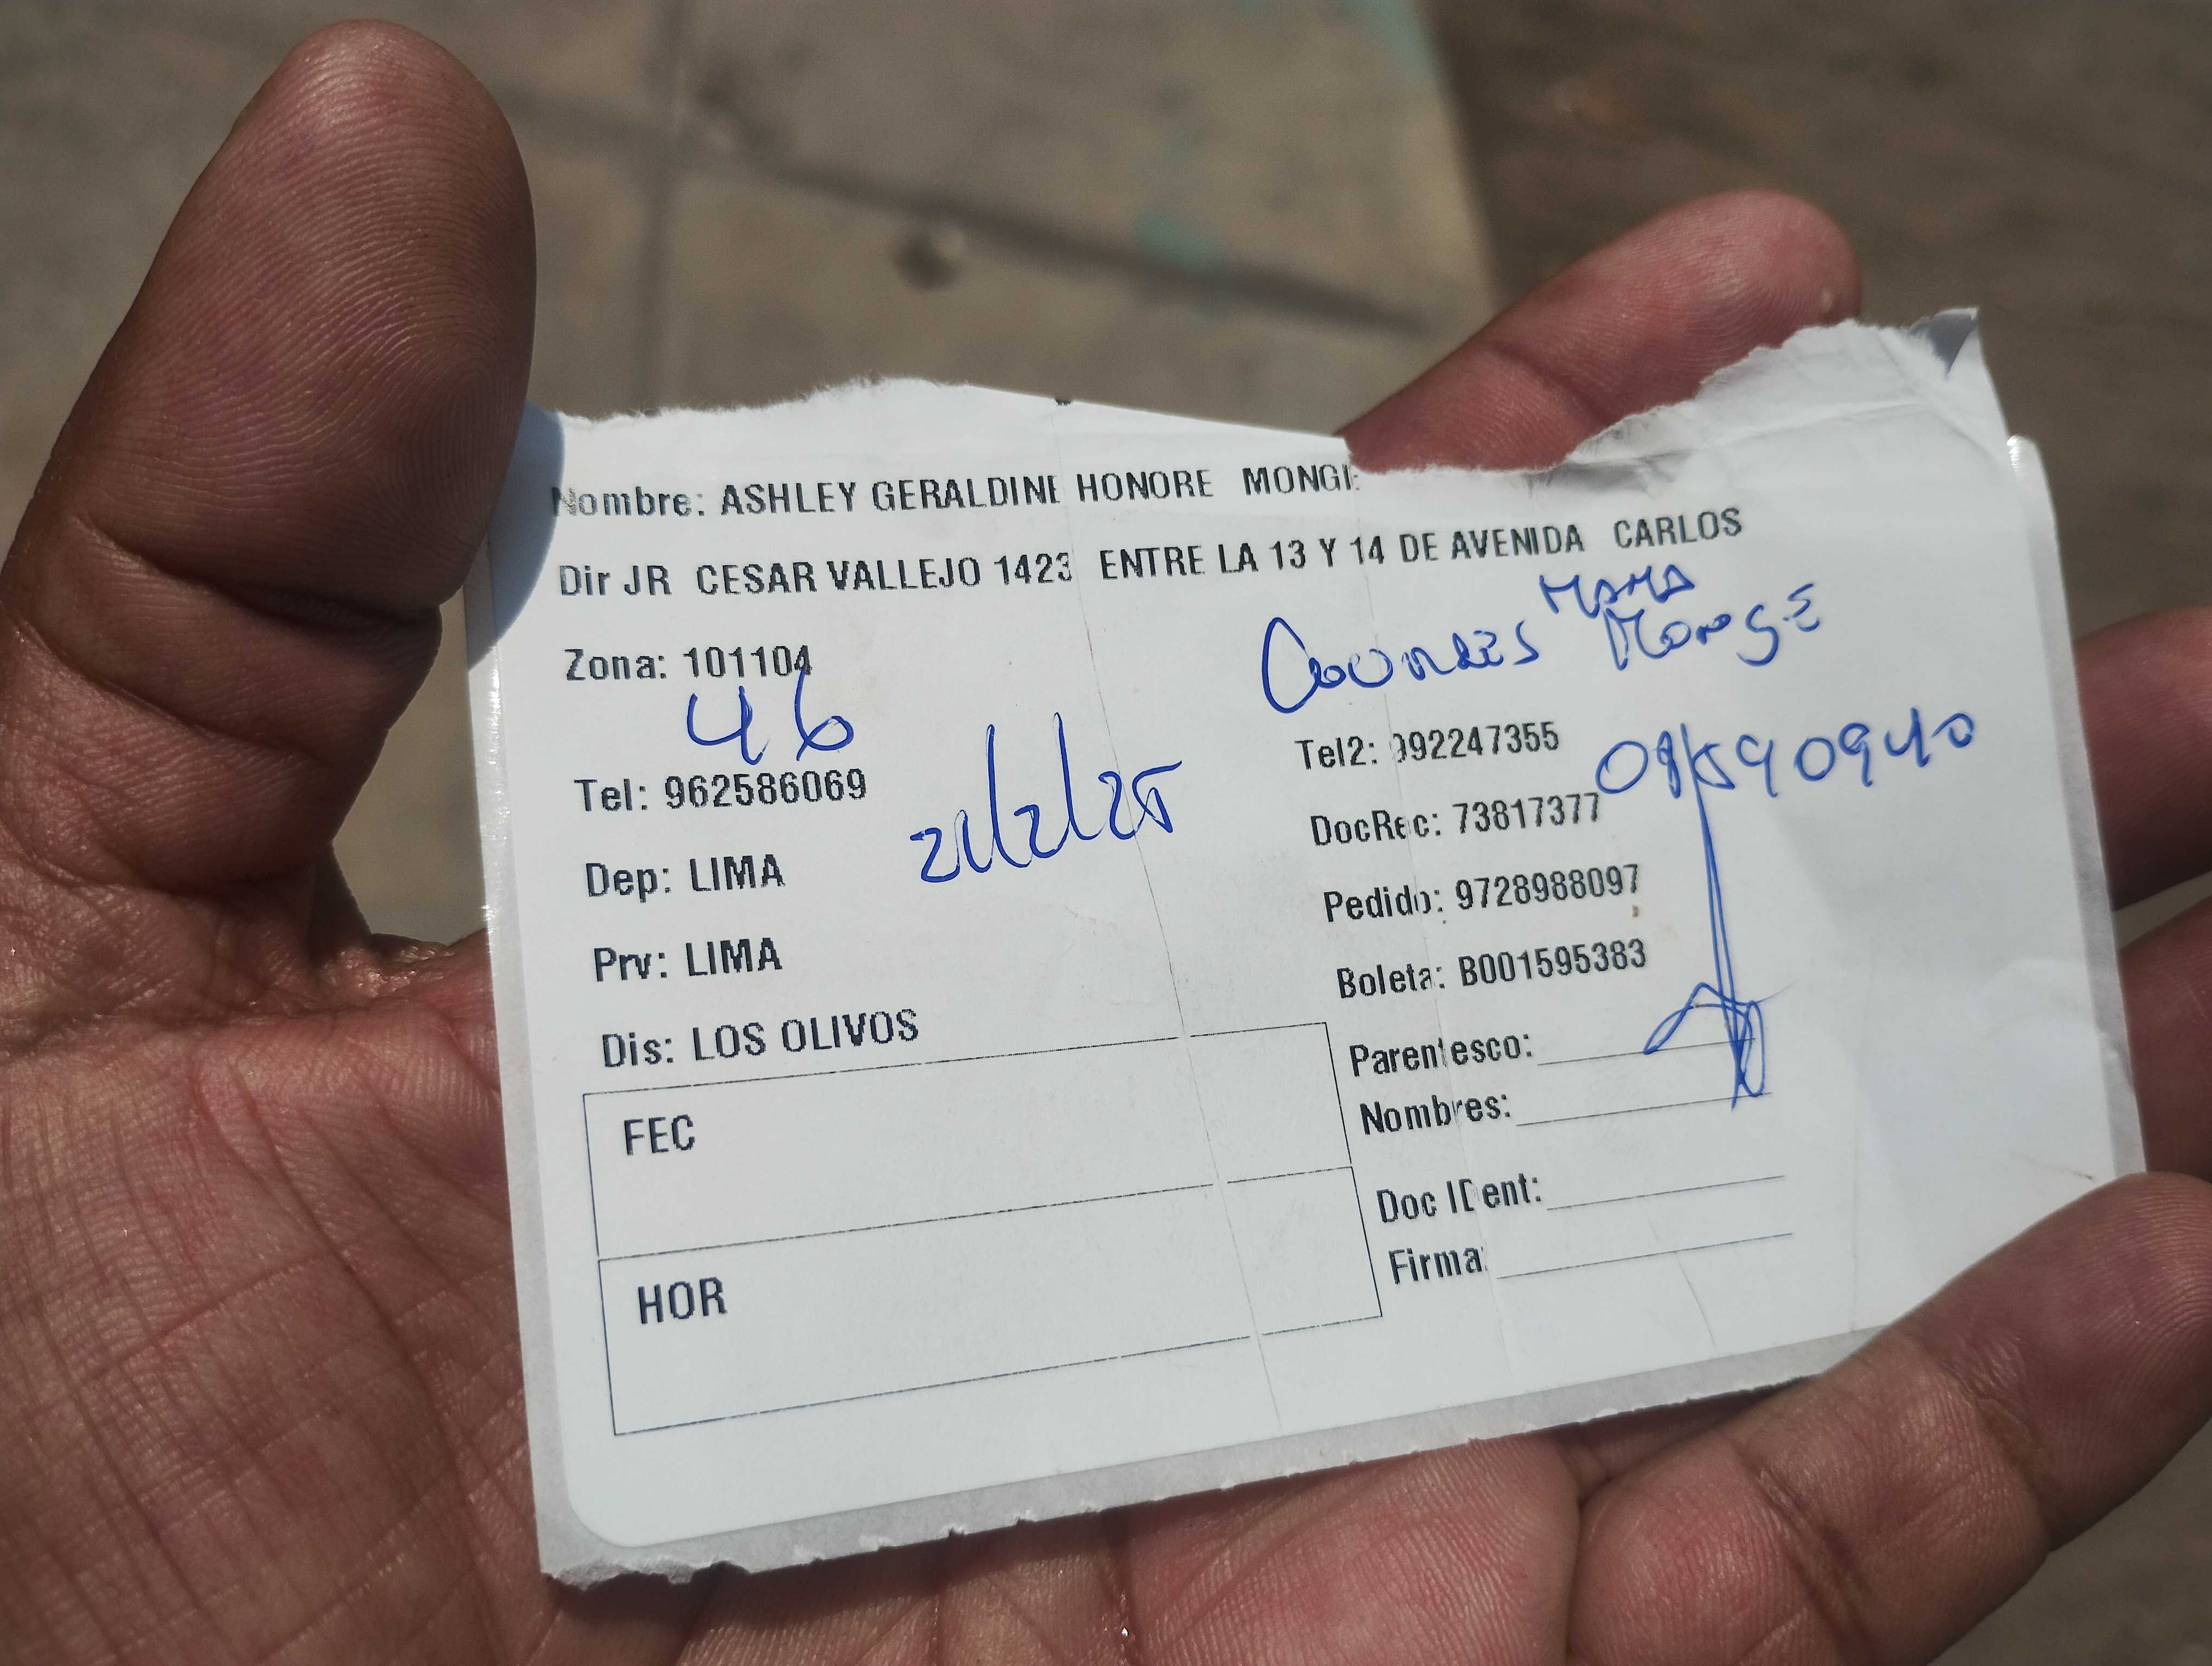 Nombre: ASHLEY GERALDINE HONORE MONGE
Dir JR CESAR VALLEJO 1423 ENTRE LA 13 Y 14 DE AVENIDA CARLOS
MAMA
Zona: 101104
Monge
46
Tel2: 992247355
Tel: 962586069
21/2/25
DocRec: 73817377
Dep: LIMA
Pedido: 9728988097
Prv: LIMA
Boleta: B001595383
Dis: LOS OLIVOS
Parentesco:
FEC
Nombres:
Doc IDent:
HOR
Firma: